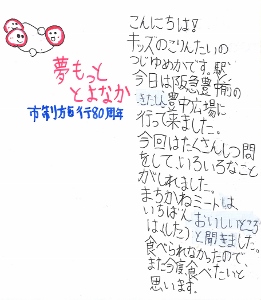 夢もっと
とよなか
市制施行80周年
こんにちは!
キッズのこりんたいの
つじゆめかです。
今日は、阪急豊中駅と
きたしん豊中広場に
行って来ました。
今回はたくさんしつ問
をして、いろいろなこと
がしれました。
まちかねミートは、
いちばんおいしいところ
は(した)と聞きました。
食べられなかったので、
また今度、食べたいと
思います。